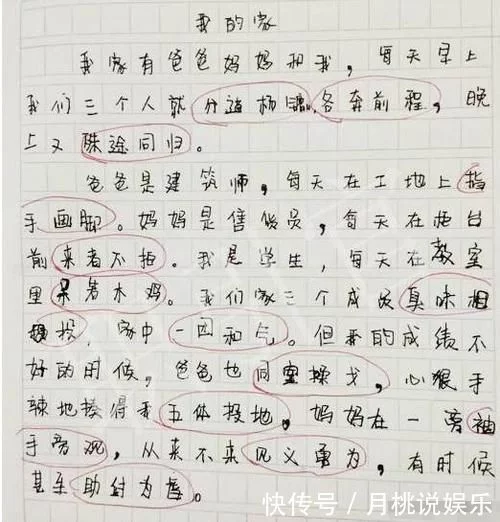 我的家
我家有爸爸妈妈和我，每天早上
我们三个人就分道扬镳，各奔前程，晚
上又殊途同归。
爸爸是建筑师，每天在工地上指
手画脚。妈妈是售货员，每天在柜台
前来者不拒。我是学生，每天在教室
里呆若木鸡。我们家三个成员臭味相
投，家中一团和气。但我的成绩不
好的时候，爸爸也同室操戈，心狠手
辣地揍得我五体投地，妈妈在一旁袖
手旁观，从来不来见义勇为，有时候
甚至助纣为虐。
快传号／月桃说娱乐